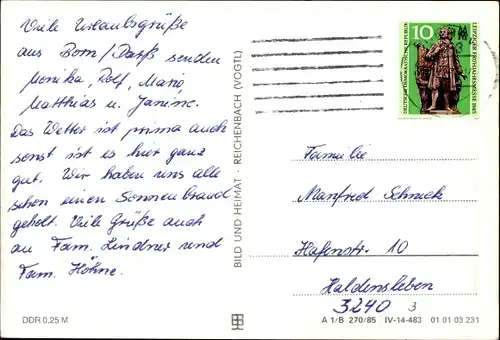 Viele Urlaubsgrüße
aus Born/Darß senden
Monika, Rolf, Mario,
Matthias u. Janine.
Das Wetter ist prima auch
sonst ist es hier ganz
gut. Wir haben uns alle
schon einen Sonnenbrand
geholt. Viele Grüße auch
an Fam. Lindner und
Fam. Höhne.
DDR 0,25 M
BILD UND HEIMAT · REICHENBACH (VOGTL)
10
DEUTSCHE DEMOKRATISCHE REPUBLIK
LEIPZIGER FRÜHJAHRSMESSE 1985
Familie
Manfred Schneck
Hafenstr. 10
Haldensleben
3240
3
A 1/B 270/85 IV-14-483 01 01 03 231